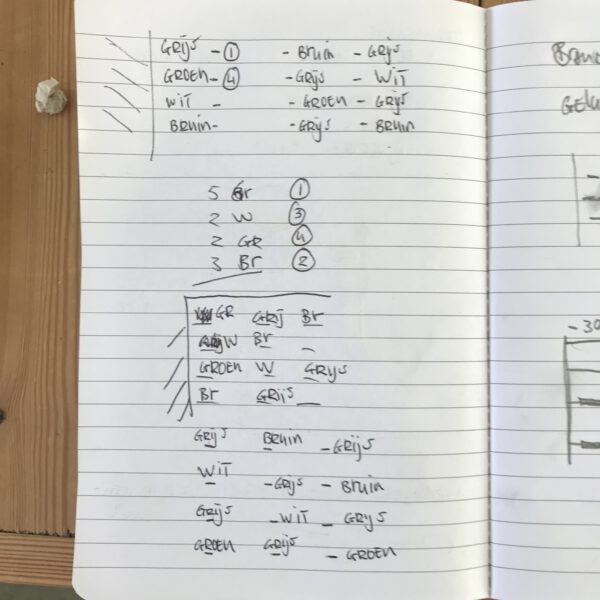 GRIJS - ① - BRUIN - GRIJS
GROEN - ④ - GRIJS - WIT
WIT - - GROEN - GRIJS
BRUIN - - GRIJS - BRUIN
5 Gr ①
2 W ③
2 GR ④
3 Br ②
GR GRIJ Br
W Br _
GROEN W GRIJS
Br GRIJS _
GRIJS BRUIN - GRIJS
WIT - GRIJS - BRUIN
GRIJS - WIT - GRIJS
GROEN GRIJS - GROEN
-30